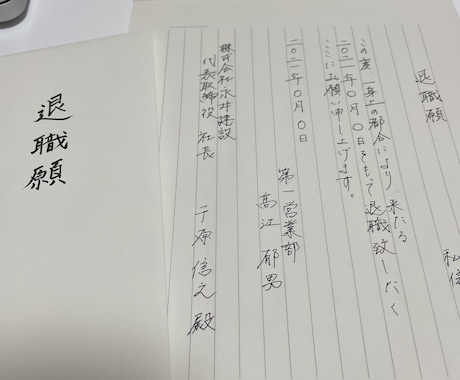 退職願
私儀
この度 一身上の都合により、来たる
二〇二一年〇月〇日をもって退職致したく
ここにお願い申し上げます。
二〇二一年〇月〇日
第一営業部
高江 郁男
株式会社永井建設
代表取締役 社長
千原信之殿
退職願